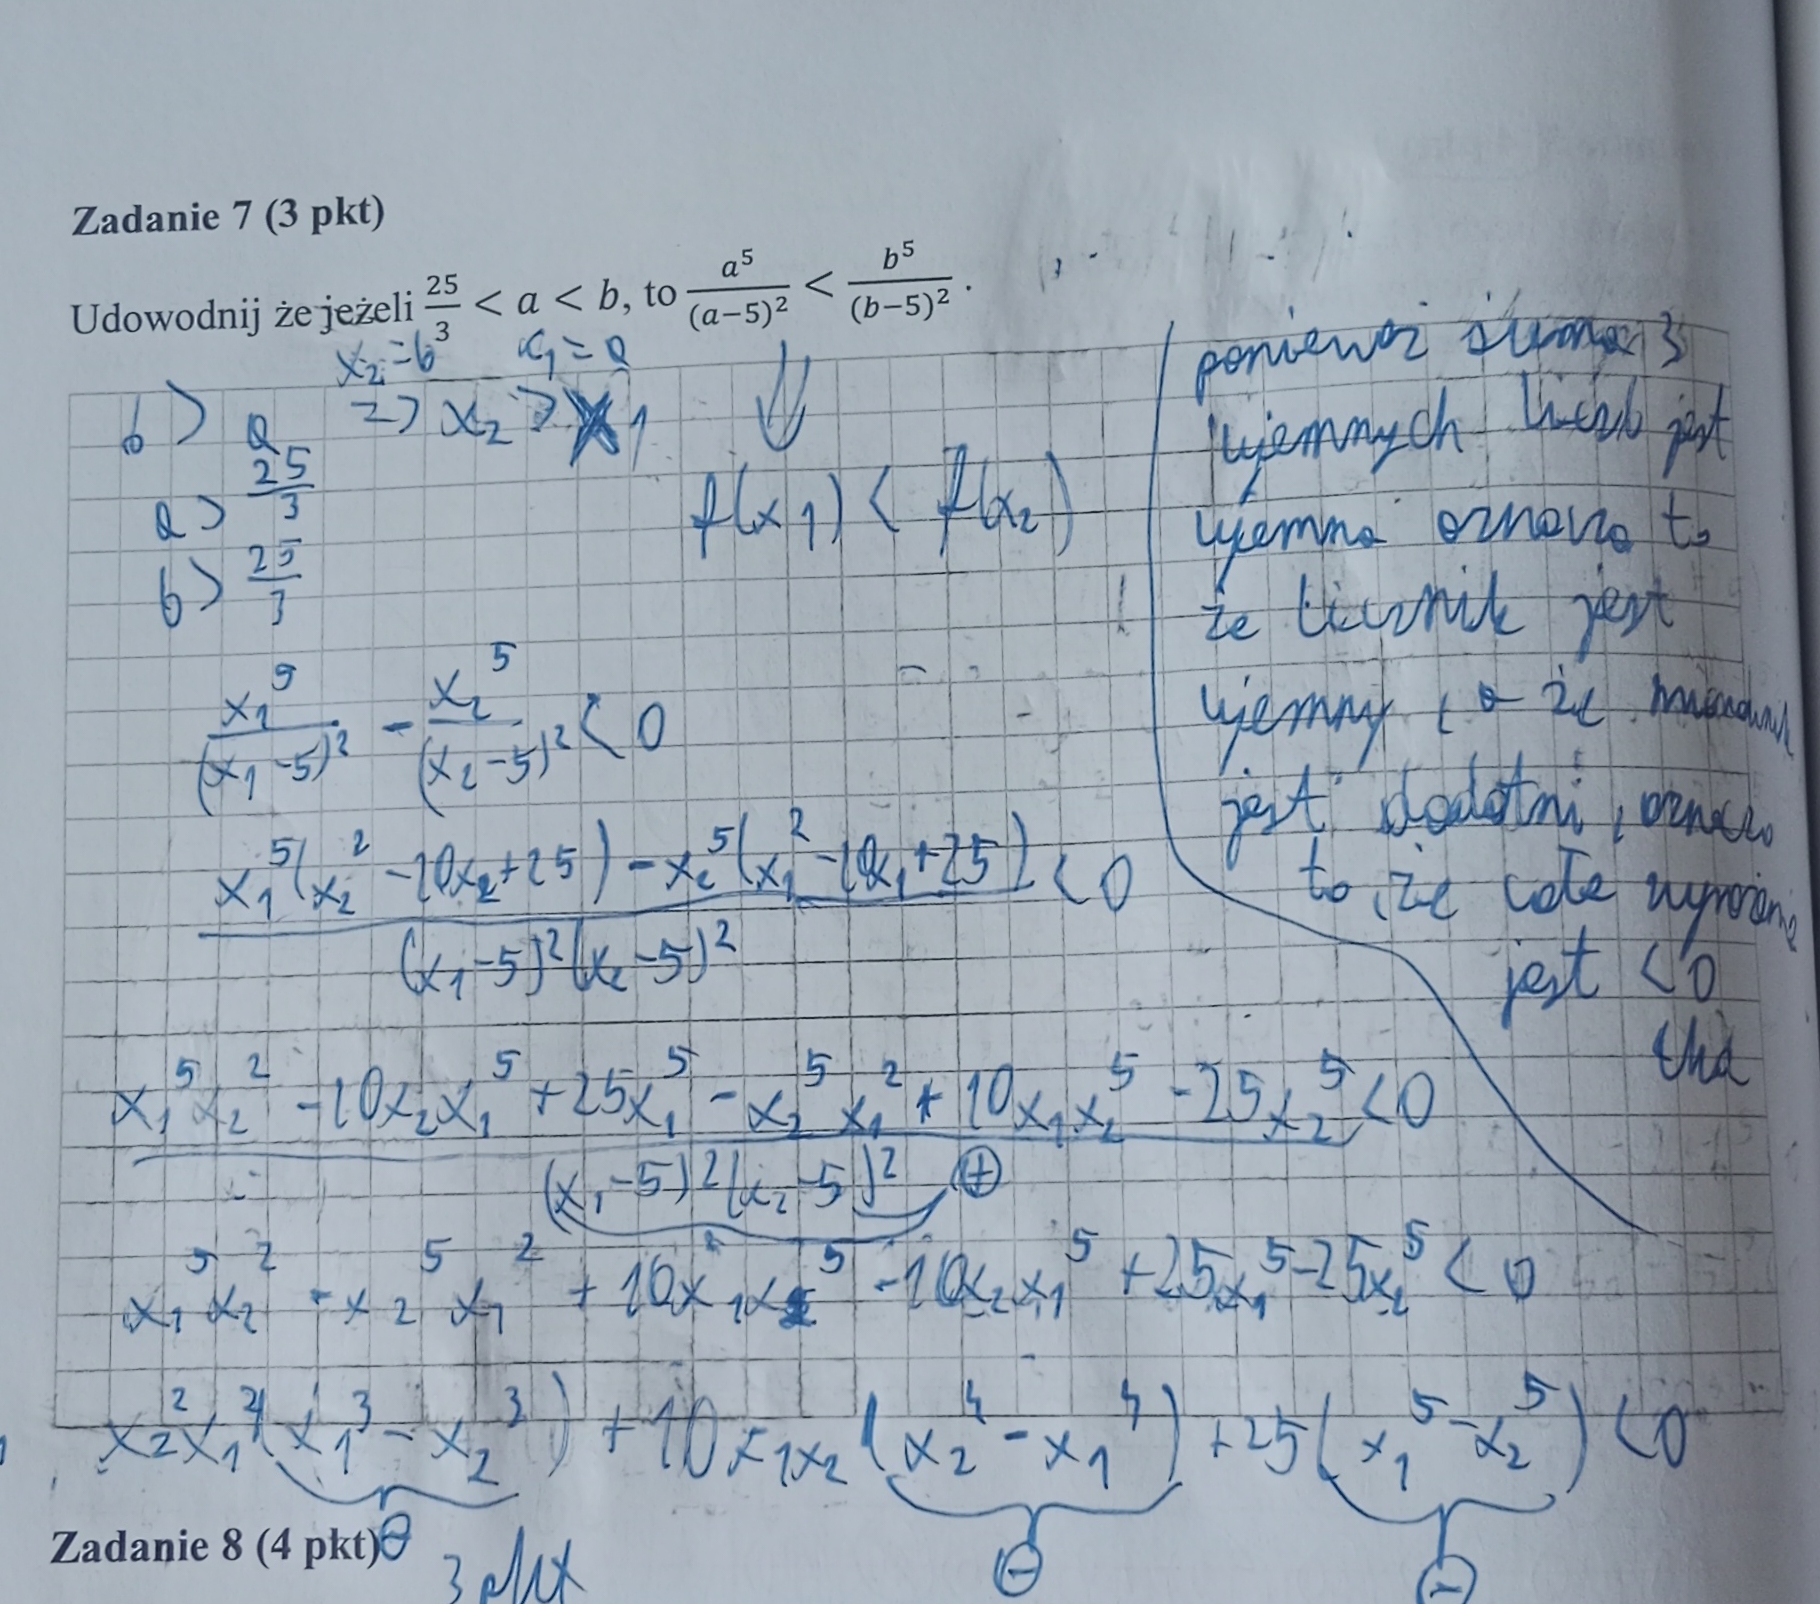 Zadanie 7 (3 pkt)
Udowodnij że jeżeli 25/3 < a < b, to a^5/(a−5)^2 < b^5/(b−5)^2.
x₂ = b x₁ = a
b > a => x₂ > x₁
a > 25/3
f(x₁) < f(x₂)
b > 25/3
x₁^5/(x₁-5)^2 - x₂^5/(x₂-5)^2 < 0
x₁^5(x₂^2 - 10x₂ + 25) - x₂^5(x₁^2 - 10x₁ + 25) < 0
(x₁-5)^2(x₂-5)^2
x₁^5x₂^2 - 10x₂x₁^5 + 25x₁^5 - x₂^5x₁^2 + 10x₁x₂^5 - 25x₂^5 < 0
(x₁-5)^2(x₂-5)^2 ⊕
x₁^5x₂^2 - x₂^5x₁^2 + 10x₁x₂^5 - 10x₂x₁^5 + 25x₁^5 - 25x₂^5 < 0
x₂^2x₁^2(x₁^3 - x₂^3) + 10x₁x₂(x₂^4 - x₁^4) + 25(x₁^5 - x₂^5) < 0
⊖ ⊖ ⊖
ponieważ suma 3
ujemnych liczb jest
ujemna oznacza to
że licznik jest
ujemny, a że mianownik
jest dodatni, oznacza
to, że całe wyrażenie
jest < 0
Zadanie 8 (4 pkt)
3 pkt